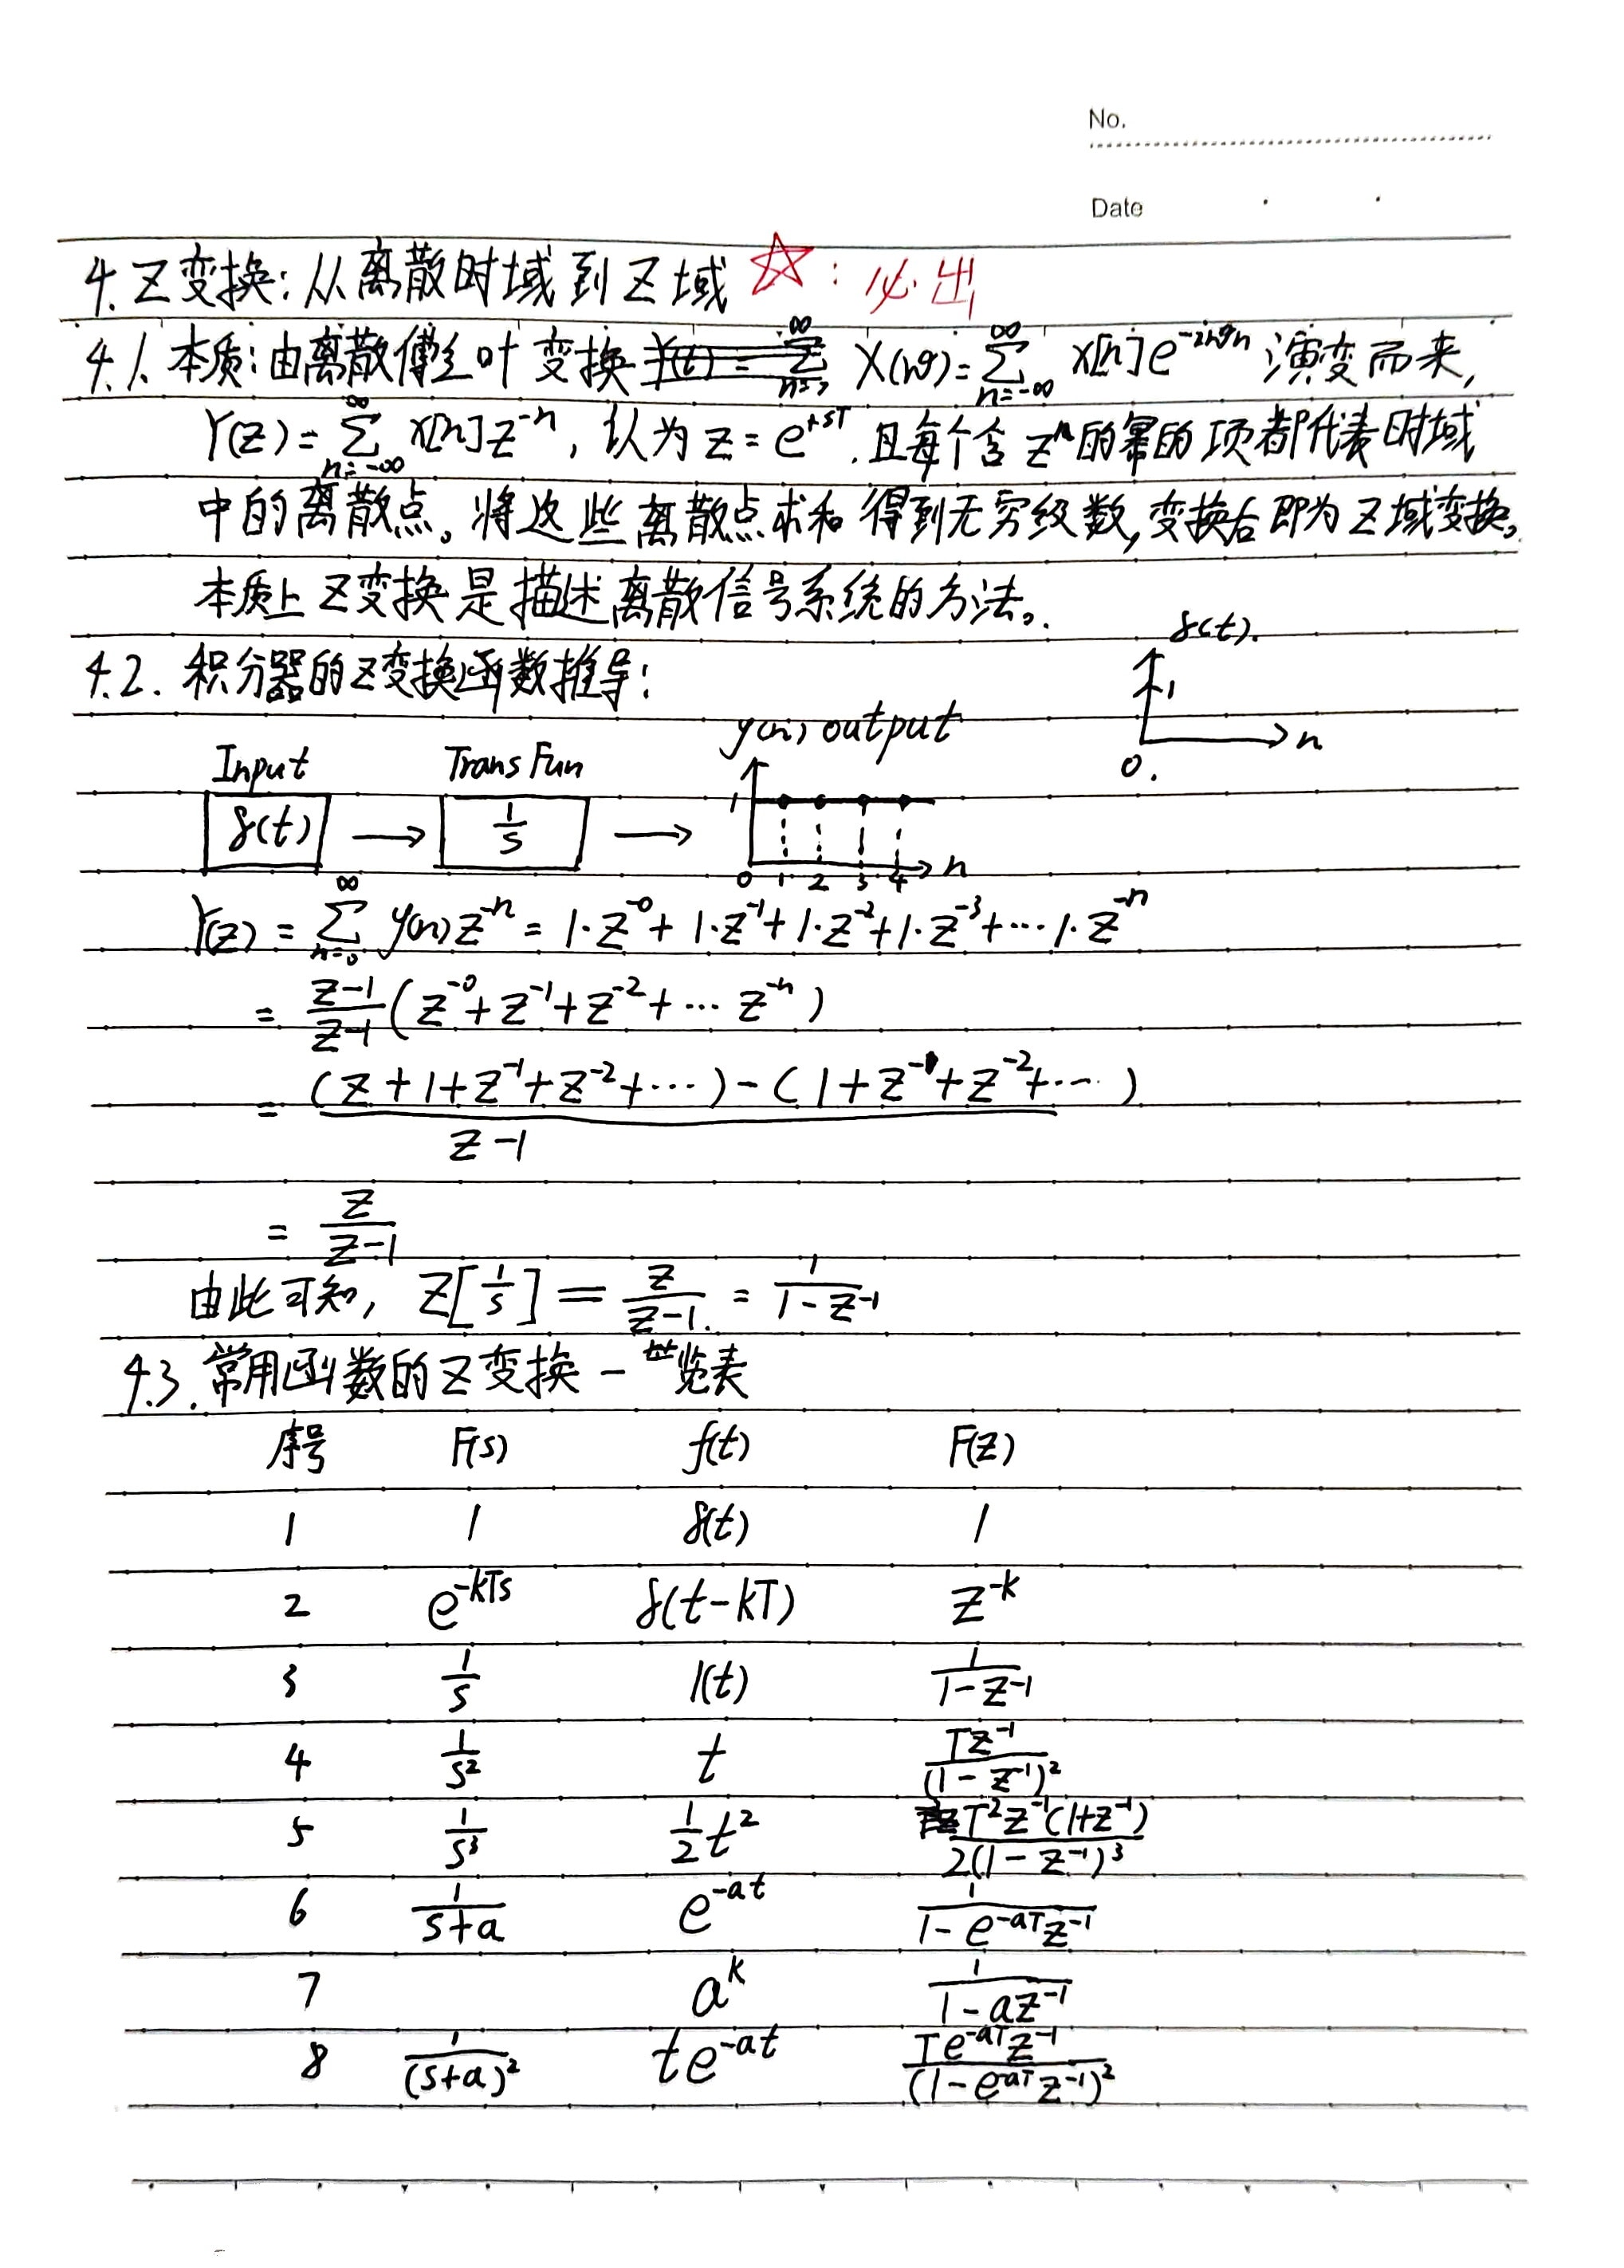 No.
Date
4. Z变换: 从离散时域到Z域 ☆: 必出
4.1. 本质: 由离散傅立叶变换 X(ω)=∑_{n=-∞}^{∞} x[n]e 演变而来,
Y(z)=∑_{n=-∞}^{∞} x[n]z^{-n}, 认为 z=e^{+sT}. 且每个含 z^n 的幂的项都代表时域
中的离散点。将这些离散点求和得到无穷级数,变换后即为Z域变换。
本质上Z变换是描述离散信号系统的方法。.
δ(t).
4.2. 积分器的Z变换函数推导:
1
n
0.
Input TransFun y(n) output
δ(t) → 1/s → 1
0 1 2 3 4 n
Y(z) = ∑_{n=0}^{∞} y(n)z^{-n} = 1·z^{-0} + 1·z^{-1} + 1·z^{-2} + 1·z^{-3} + ⋯ 1·z^{-n}
= (z-1)/(z-1) (z^{-0} + z^{-1} + z^{-2} + ⋯ z^{-n})
= ((z+1+z^{-1}+z^{-2}+⋯) - (1+z^{-1}+z^{-2}+⋯))/(z-1)
= z/(z-1)
由此可知, Z[1/s] = z/(z-1). = 1/(1-z^{-1})
4.3. 常用函数的Z变换一览表
序号 F(s) f(t) F(z)
1 1 δ(t) 1
2 e^{-kTs} δ(t-kT) z^{-k}
3 1/s 1(t) 1/(1-z^{-1})
4 1/s^2 t Tz^{-1}/(1-z^{-1})^2
5 1/s^3 1/2 t^2 T^2z^{-1}(1+z^{-1})/2(1-z^{-1})^3
6 1/(s+a) e^{-at} 1/(1-e^{-aT}z^{-1})
7 a^k 1/(1-az^{-1})
8 1/(s+a)^2 te^{-at} Te^{-aT}z^{-1}/(1-e^{-aT}z^{-1})^2